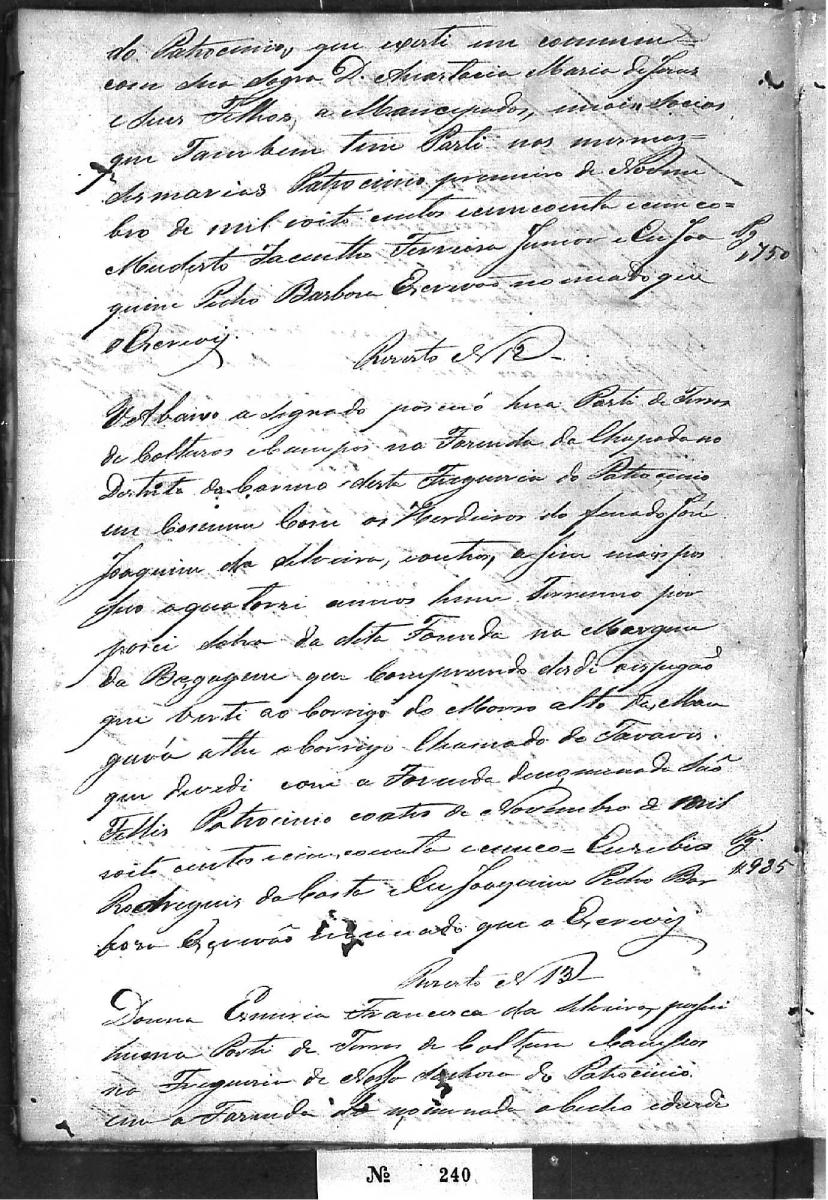 do Patrocinio, que exerti em commum=
com sua sogra D. Anastacia Maria de Jesus
e seus Filhos, a Mancipados, mais socios
que Tambem tem Parti nas mesmas=
Sismarias Patrocinio premeiro de Novem
bro de mil oito centos e cincoenta e cinco=
Muderto Jacintho Ferreira Junior e Eu Joa
Pg 1750
quim Pedro Barbosa Escrevão nomeado que
o Escrevij.
Rezerto N 12
O Abaixo a signado possuó hua Parti de Terras
de Colturas e Campos na Fazenda da Chapada no
Destrito do Carmo desta Freguezia do Patrocinio
em Comum Com os Herdeiros do finado José
Joaquim da Silveira, e outros, a sim mais pos
suo a quatorzi annos hum Terreno por
possi dabra da dita Fazenda na Margem
da Bagagem que Comprende desdi o espigão
que verti ao Corrigo do Morro alto de
guará athe o Corrigo Chamado do Tavares.
que devedi com a Fazenda denominada São
Fellis Patrocinio coatro de Novembro de mil
oito centos e cincoenta e cinco= Euzebio
Pg. 1.935
Rodrigues da Costa e Eu Joaquim Pedro Bar
boza Escrevão nomeado que o Escrevij
Rezerto N 13
Donna Francisca da Silveira, possui
huma Parti de Terras de Coltura e Campos
na Freguezia de Nossa Senhora do Patrocinio
em a Fazenda de nominada
№ 240